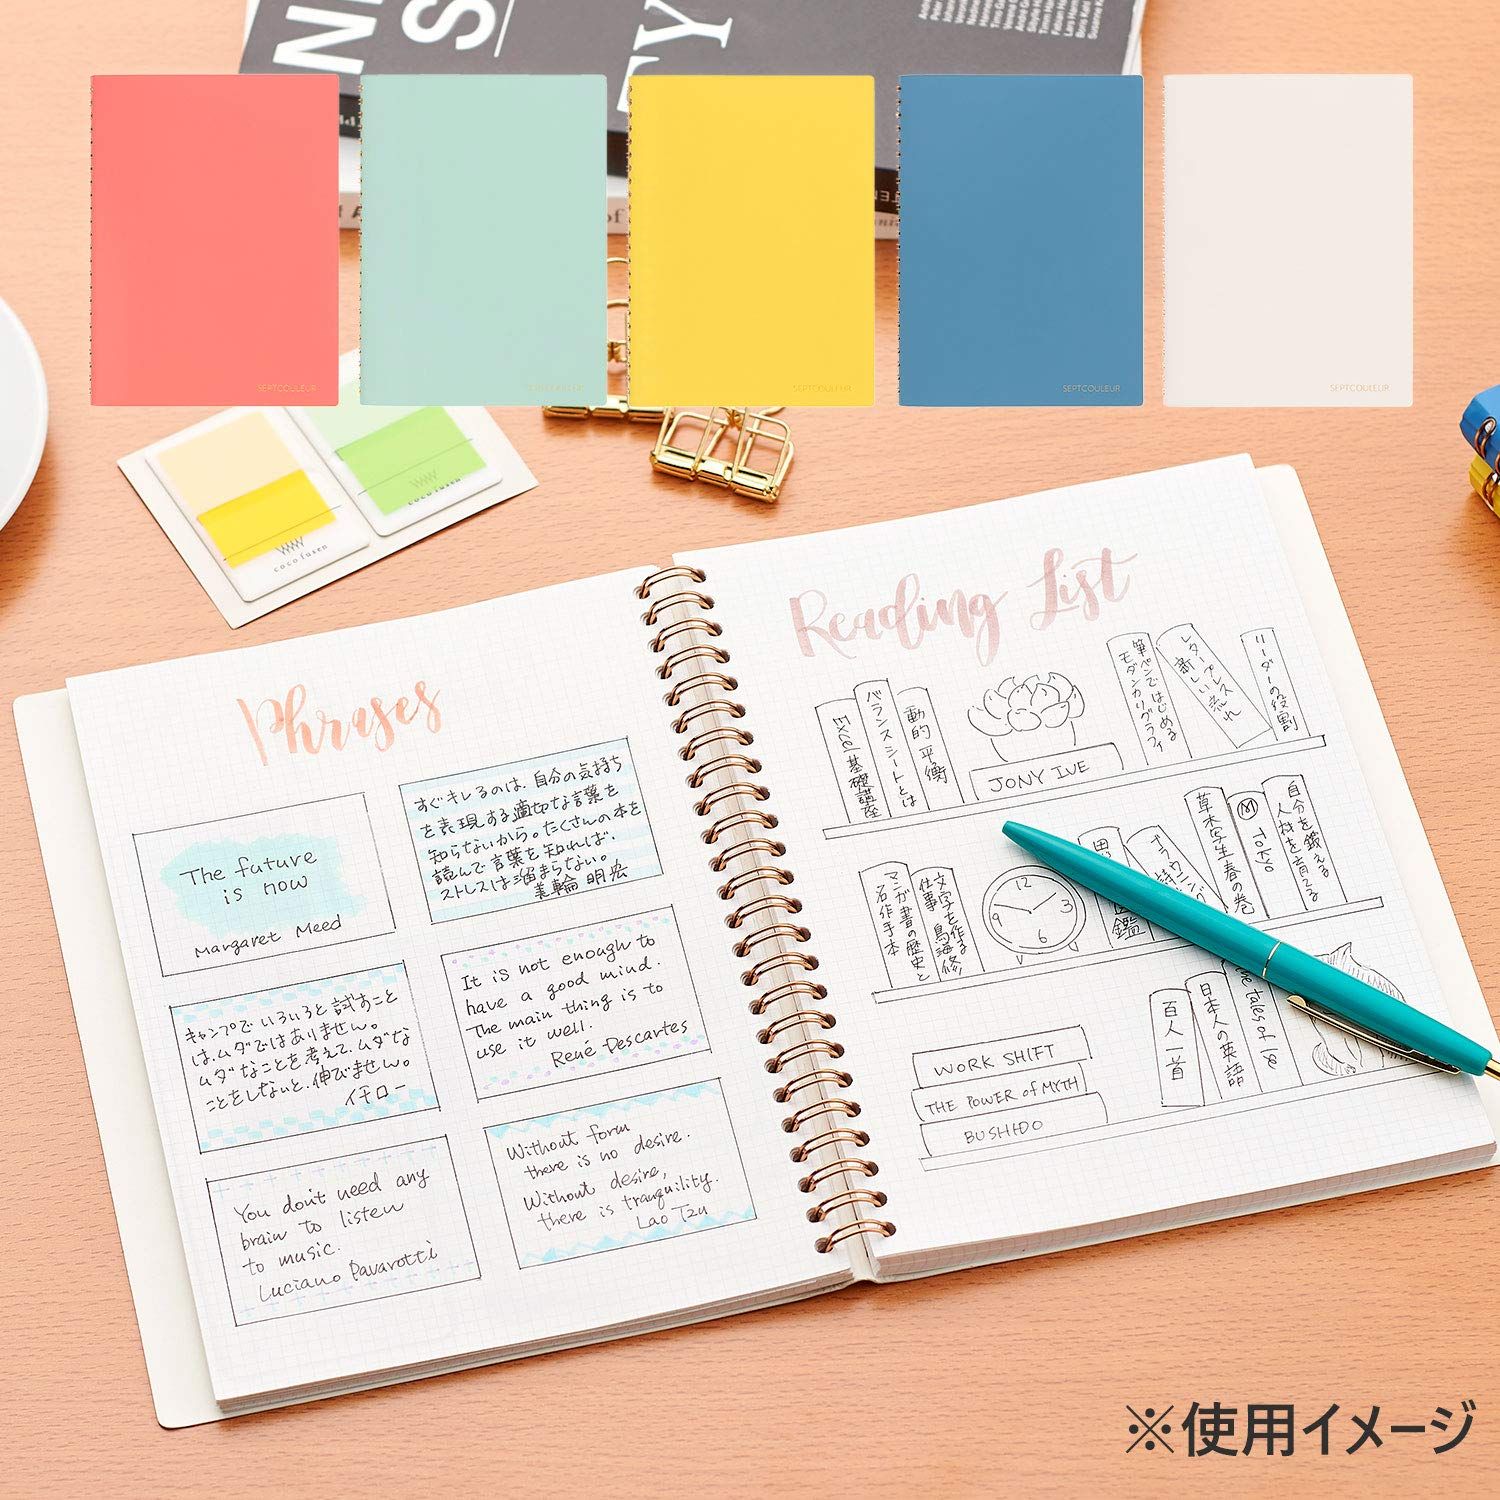 SEPTCOULEUR
SEPTCOULEUR
SEPTCOULEUR
SEPTCOULEUR
coco fusen
coco fusen
Phrases
The future
is now
Margaret Meed
すぐキレるのは、自分の気持ち
を表現する適切な言葉を
知らないから。たくさんの本を
読んで言葉を知れば、
ストレスは溜まらない。
美輪明宏
キャンプでいろいろと試すこと
は、ムダではありません。
ムダなことを考えて、ムダな
ことをしないと、伸びません。
イチロー
It is not enough to
have a good mind.
The main thing is to
use it well.
René Descartes
You don't need any
brain to listen
to music.
Luciano Pavarotti
Without form
there is no desire.
Without desire,
there is tranquility.
Lao Tzu
Reading List
Excel基礎講座
バランスシートとは
動的平衡
JONY IVE
筆ペンではじめる
モダンカリグラフィ
レタープレス
新しい流れ
リーダーの役割
マンガ書の歴史と
名作手本
文字を作る
仕事 鳥海修
12
3
6
9
図鑑
草木写生春の巻
M TOKYO
自分を鍛える
人材を育てる
WORK SHIFT
THE POWER of MYTH
BUSHIDO
百人一首
日本人の英語
the tales of
※使用イメージ